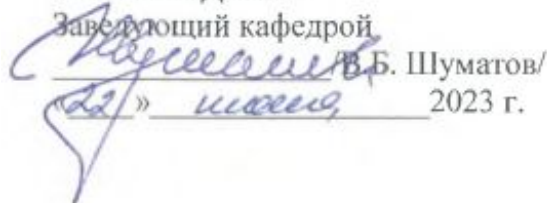 Заведующий кафедрой
/В.Б. Шуматов/
«22» июня 2023 г.